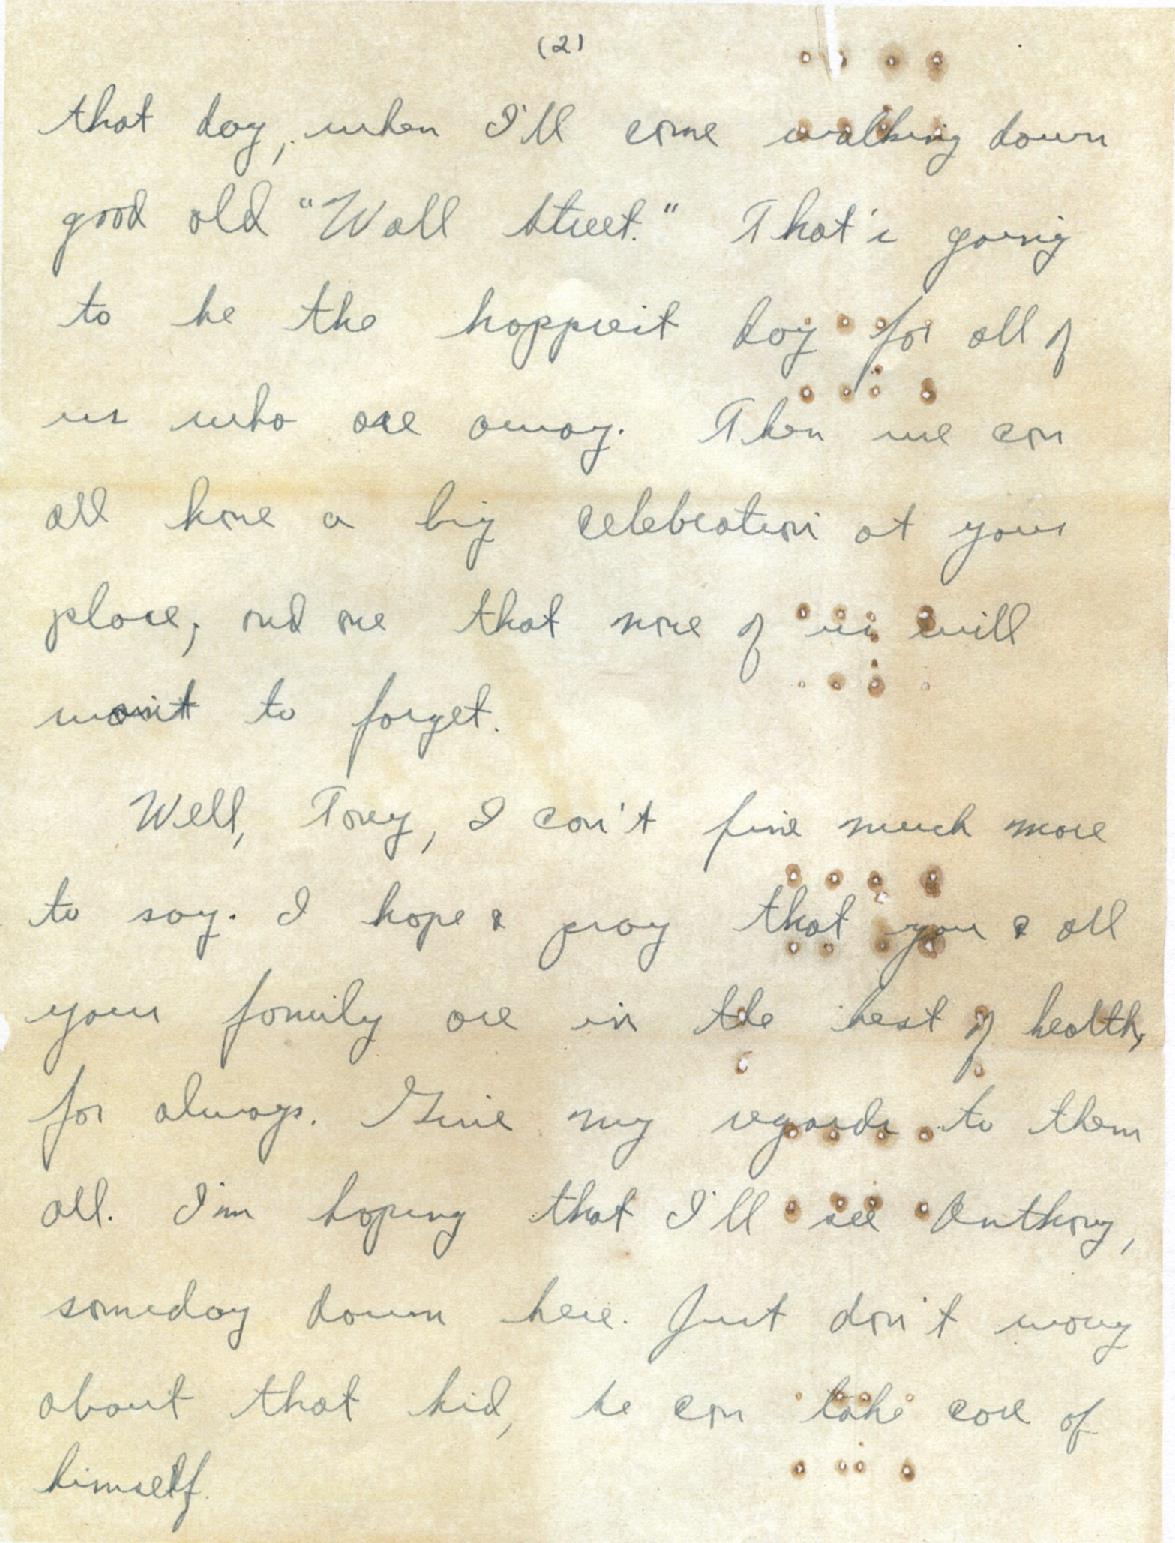 (2)
that day, when I'll come walking down
good old "Wall Street." That's going
to be the happiest day for all of
us who are away. Then we can
all have a big celebration at your
place, and one that none of us will
want to forget.
Well, Tony, I can't fine much more
to say. I hope & pray that you & all
your family are in the best of health,
for always. Give my regards to them
all. I'm hoping that I'll see Anthony,
someday down here. Just don't worry
about that kid, he can take care of
himself.